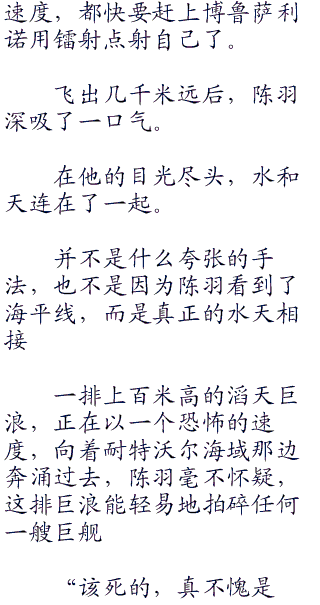 速度，都快要赶上博鲁萨利
诺用镭射点射自己了。
飞出几千米远后，陈羽
深吸了一口气。
在他的目光尽头，水和
天连在了一起。
并不是什么夸张的手
法，也不是因为陈羽看到了
海平线，而是真正的水天相
接
一排上百米高的滔天巨
浪，正在以一个恐怖的速
度，向着耐特沃尔海域那边
奔涌过去，陈羽毫不怀疑，
这排巨浪能轻易地拍碎任何
一艘巨舰
“该死的，真不愧是